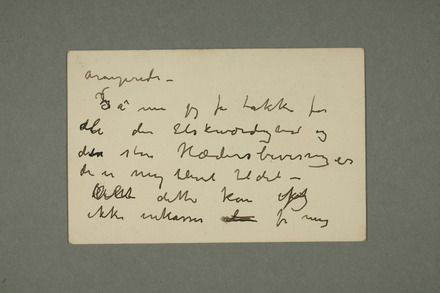 arangerede –
Så må jeg få takke for
al den Elskværdighed og
den store Hædersbevisning
der er mig blevet til del –
Alt dette kan
ikke inkasseres for mig